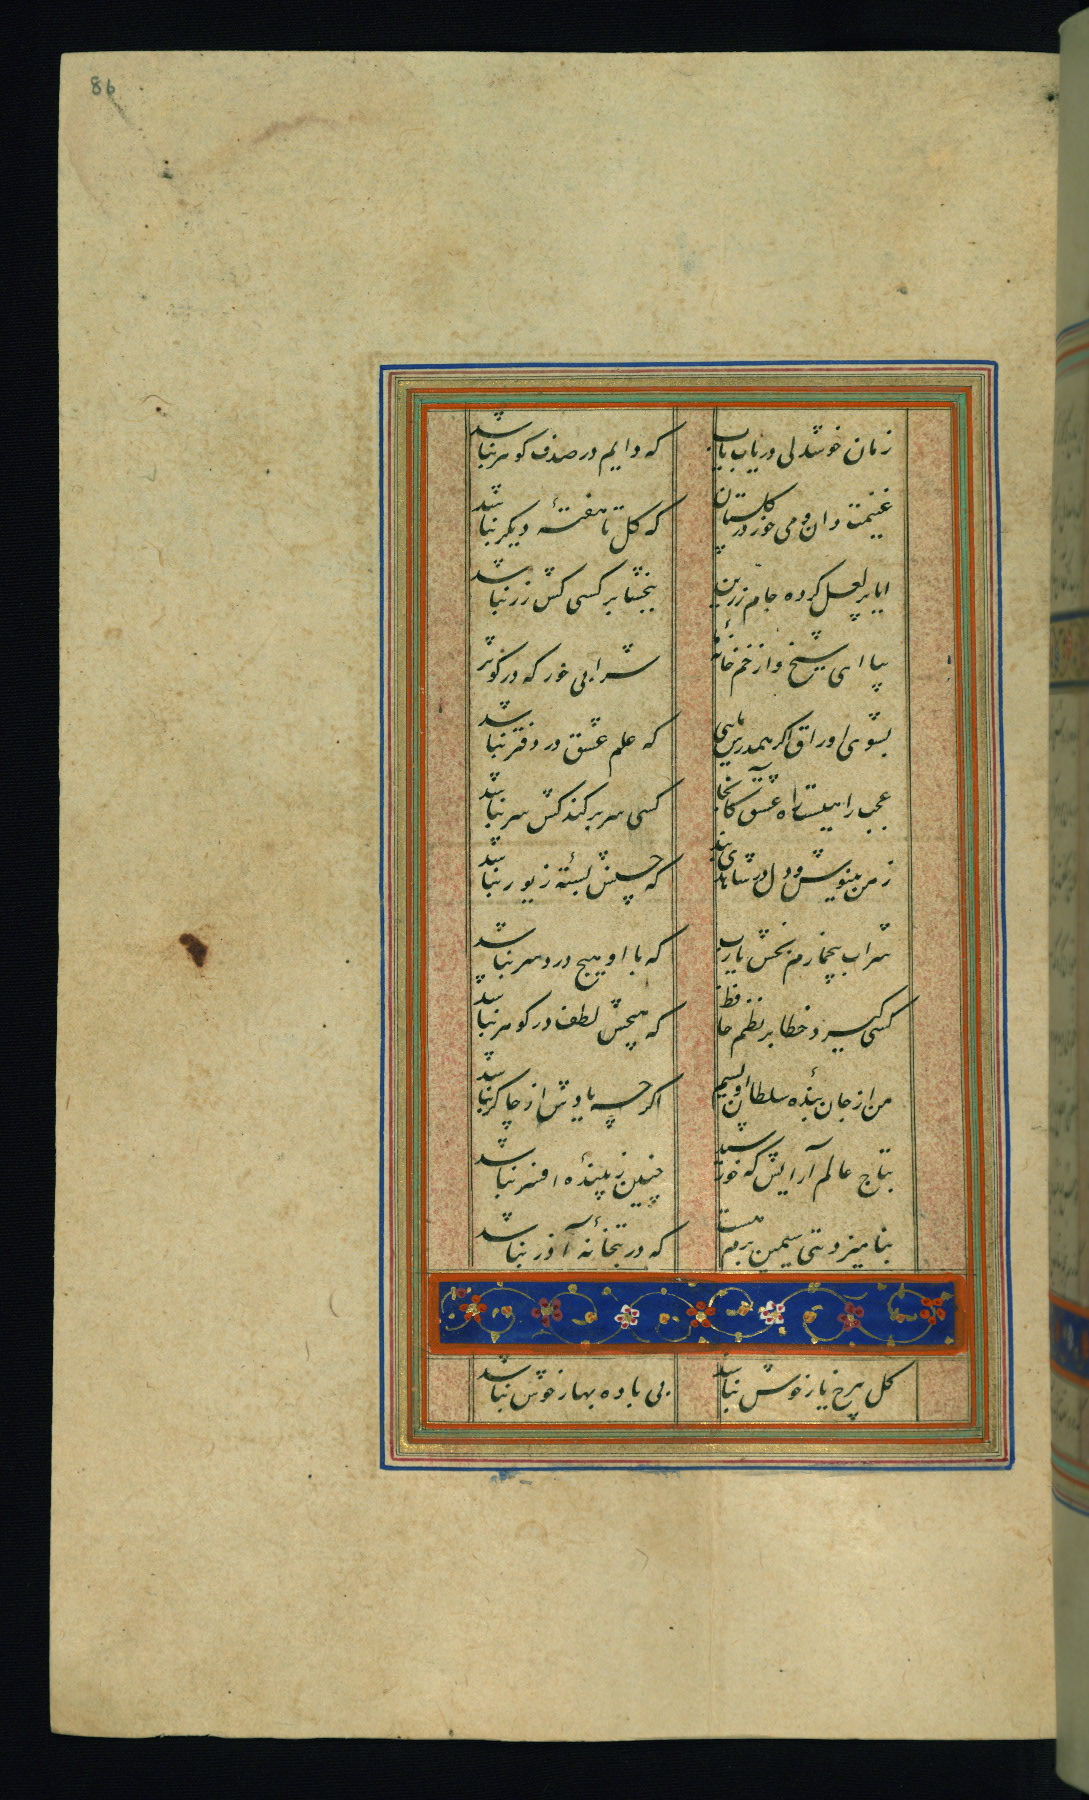 86
زمان خوشدلی دریاب یاب که دایم در صدف کوهر نباشد
غنیمت دان و می خور در کلستان که کل تا هفتهٔ دیکر نباشد
ایا پر لعل کرده جام زرین ببخشا بر کسی کش زر نباشد
بیا ای شیخ و از خمخانهٔ شرابی خور که در کوثر
بشوی اوراق اکر همدرس مایی که علم عشق در دفتر نباشد
عجب راهیست راه عشق کانجا کسی سر بر کند کش سر نباشد
ز من بنیوش و دل در شاهدی بند که حسنش بستهٔ زیور نباشد
شراب بیخمارم بخش یارب که با او هیچ درد سر نباشد
کسی کیرد خطا بر نظم حافظ که هیچش لطف در کوهر نباشد
من از جان بندهٔ سلطان اویسم اکر چه یادش از چاکر نباشد
بتاج عالم آرایش که خورشید چنین زیبندهٔ افسر نباشد
بنامیزد بتی سیمین برم هست که در بتخانهٔ آذر نباشد
کل بی رخ یار خوش نباشد بی باده بهار خوش نباشد